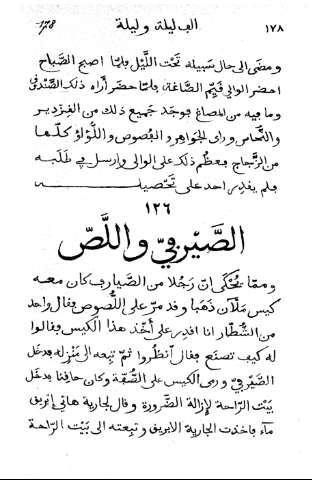 ١٧٨ الف ليلة وليلة 178
ومضى الى حال سبيله تحت اللّيل فلمّا اصبح الصّباح
احضر الوالى قيّم الصّاغة فلمّا حضر أراه ذلك الصّندوق
وما فيه من المصاغ فوجد جميع ذلك من القزدير
والنّحاس وراى الجواهر والفصوص واللّؤلؤ كلّها
من الزّجاج فعظُم ذلك على الوالى وارسل فى طلبه
فلم يقدر احد على تحصيله
١٢٦
الصَّيْرَفيّ واللّصّ
وممّا يُحْكى انّ رجُلا من الصّيارف كان معه
كيس ملآن ذهبا وقد مرّ على اللُّصوص فقال واحد
من الشُّطّار انا اقدر على أخْذ هذا الكيس فقالوا
له كيف تصنع فقال أنظُروا ثمّ تبِعه الى منْزله فدخل
الصَّيْرَفيّ ورمى الكيس على الصُّفّة وكان حاقنا فدخل
بيْت الرّاحة لإزالة الضّرورة وقال لجارية هاتى إبريق
مآء فاخذت الجارية الابريق وتبعته الى بيْت الرّاحة